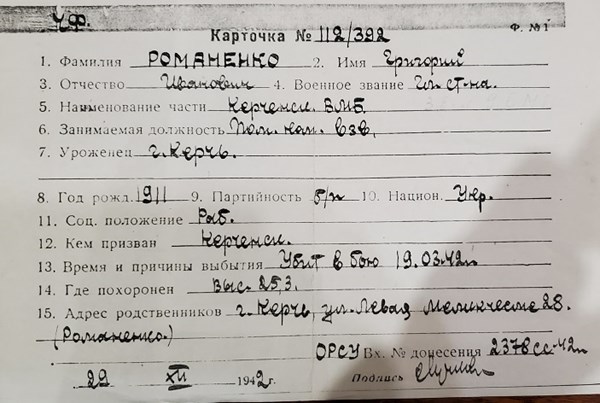 ЧФ.
Карточка № 112/392 Ф. №1
1. Фамилия РОМАНЕНКО 2. Имя Григорий
3. Отчество Иванович 4. Военное звание Гл. ст-на.
5. Наименование части Керченск. ВМБ
6. Занимаемая должность Пом. ком. взв.
7. Уроженец г. Керчь.
8. Год рожд. 1911 9. Партийность б/п 10. Национ. Укр.
11. Соц. положение Раб.
12. Кем призван Керченск.
13. Время и причины выбытия Убит в бою 19.03.42г.
14. Где похоронен выс. 25,3.
15. Адрес родственников г. Керчь, ул. Левая Мелинчесме 28.
(Романенко.)
ОРСУ Вх. № донесения 2378сс-42г.
29 XII 1942 г. Подпись